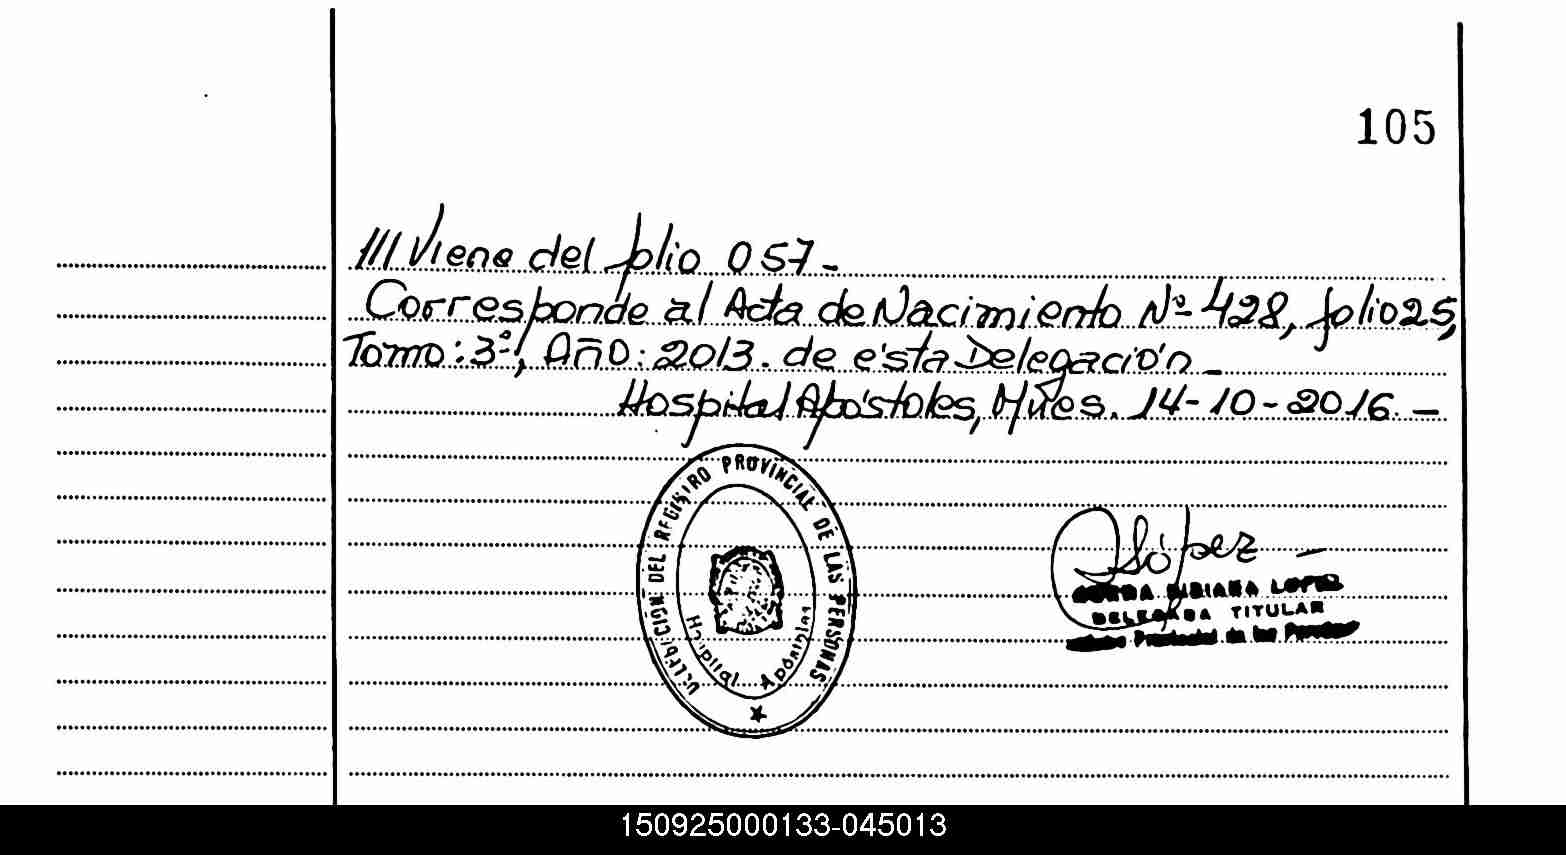 105
/// Viene del folio 057-
Corresponde al Acta de Nacimiento Nº 428, folio 25,
Tomo: 3º, Año: 2013. de ésta Delegación-
Hospital Apóstoles, Mnes. 14-10-2016.-
DEL REGISTRO PROVINCIAL DE LAS PERSONAS
Hospital Apóstoles
López
BIBIANA LOPEZ
DELEGADA TITULAR
Provincial de las Personas
150925000133-045013